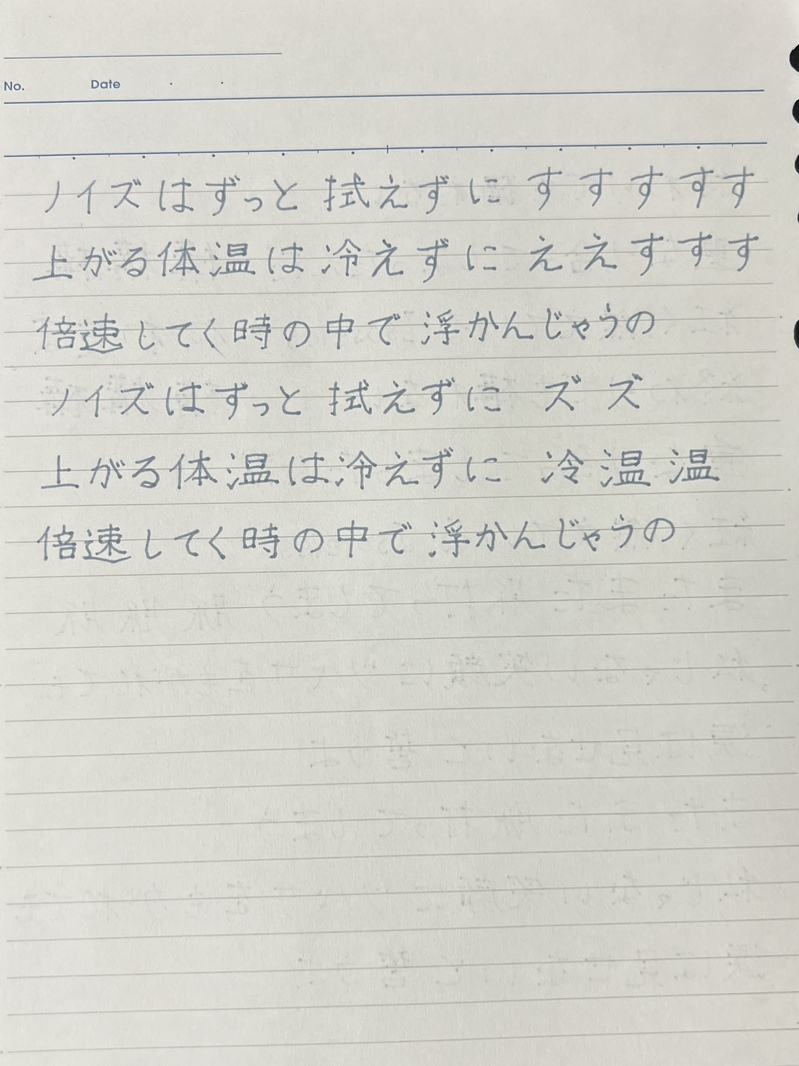 No. Date
ノイズはずっと 拭えずに す す す す す
上がる体温は 冷えずに え え す す す
倍速してく時の中で 浮かんじゃうの
ノイズはずっと 拭えずに ズ ズ
上がる体温は冷えずに 冷 温 温
倍速してく時の中で 浮かんじゃうの